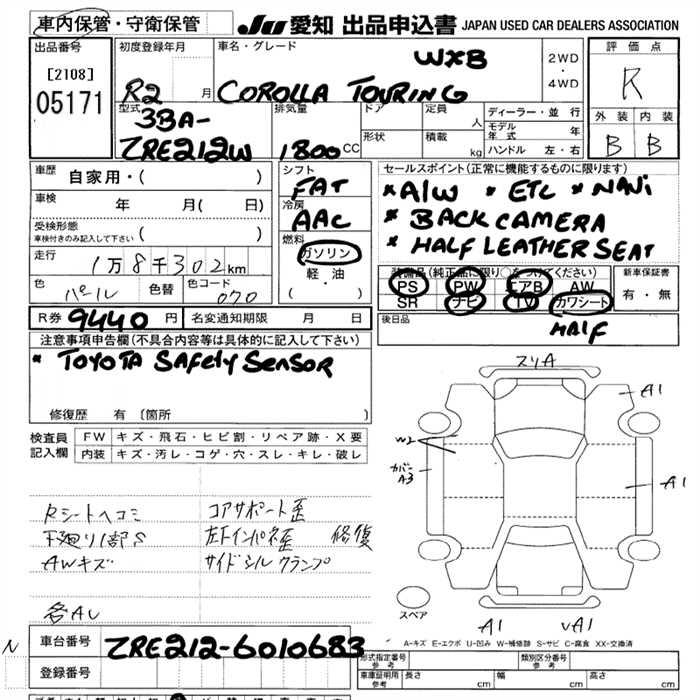 車内保管・守衛保管 JU 愛知 出品申込書 JAPAN USED CAR DEALERS ASSOCIATION
出品番号 初度登録年月 車名・グレード 評価点
[2108] WXB 2WD
05171 R2 月 COROLLA TOURING ・4WD R
型式 排気量 ドア 定員 人 ディーラー・並行 外装 内装
3BA- 形状 積載 kg モデル年式 年 B B
ZRE212W 1800CC ハンドル 左・右
車歴 自家用・( ) シフト セールスポイント(正常に機能するものに限ります)
FAT *A/W *ETC *NAVI
車検 年 月( 日) 冷房 *BACK CAMERA
受検形態 AAC *HALF LEATHER SEAT
車検付きのみ記入して下さい ( ) 燃料
走行 1万8千302km ガソリン 装備品(純正品に限り○をつけてください) 新車保証書
色 パール 色替 色コード 070 軽・油 PS PW エアB AW 有・無
( ) SR ナビ TV カワシート
R券 9440円 名変通知期限 月 日 後日品 HALF
注意事項申告欄(不具合内容等は具体的に記入して下さい)
* TOYOTA SAFETY SENSOR スリA
A1
修復歴 有 〔箇所
検査員 FW キズ・飛石・ヒビ割・リペア跡・X要 W2
記入欄 内装 キズ・汚レ・コゲ・穴・スレ・キレ・破レ カバーA3
A1
Rシートヘコミ コアサポート歪
下廻り1部S 左下インパネ歪 修復
AWキズ サイドシルクランプ
スペア
各AU A1 VA1
N 車台番号 ZRE212-6010683 A-キズ E-エクボ U-凹み W-補修跡 S-サビ C-腐食 XX-交換済
登録番号 形式指定番号 参考 類別区分番号 参考
車庫証明用 参考 長さ cm 幅 cm 高さ cm